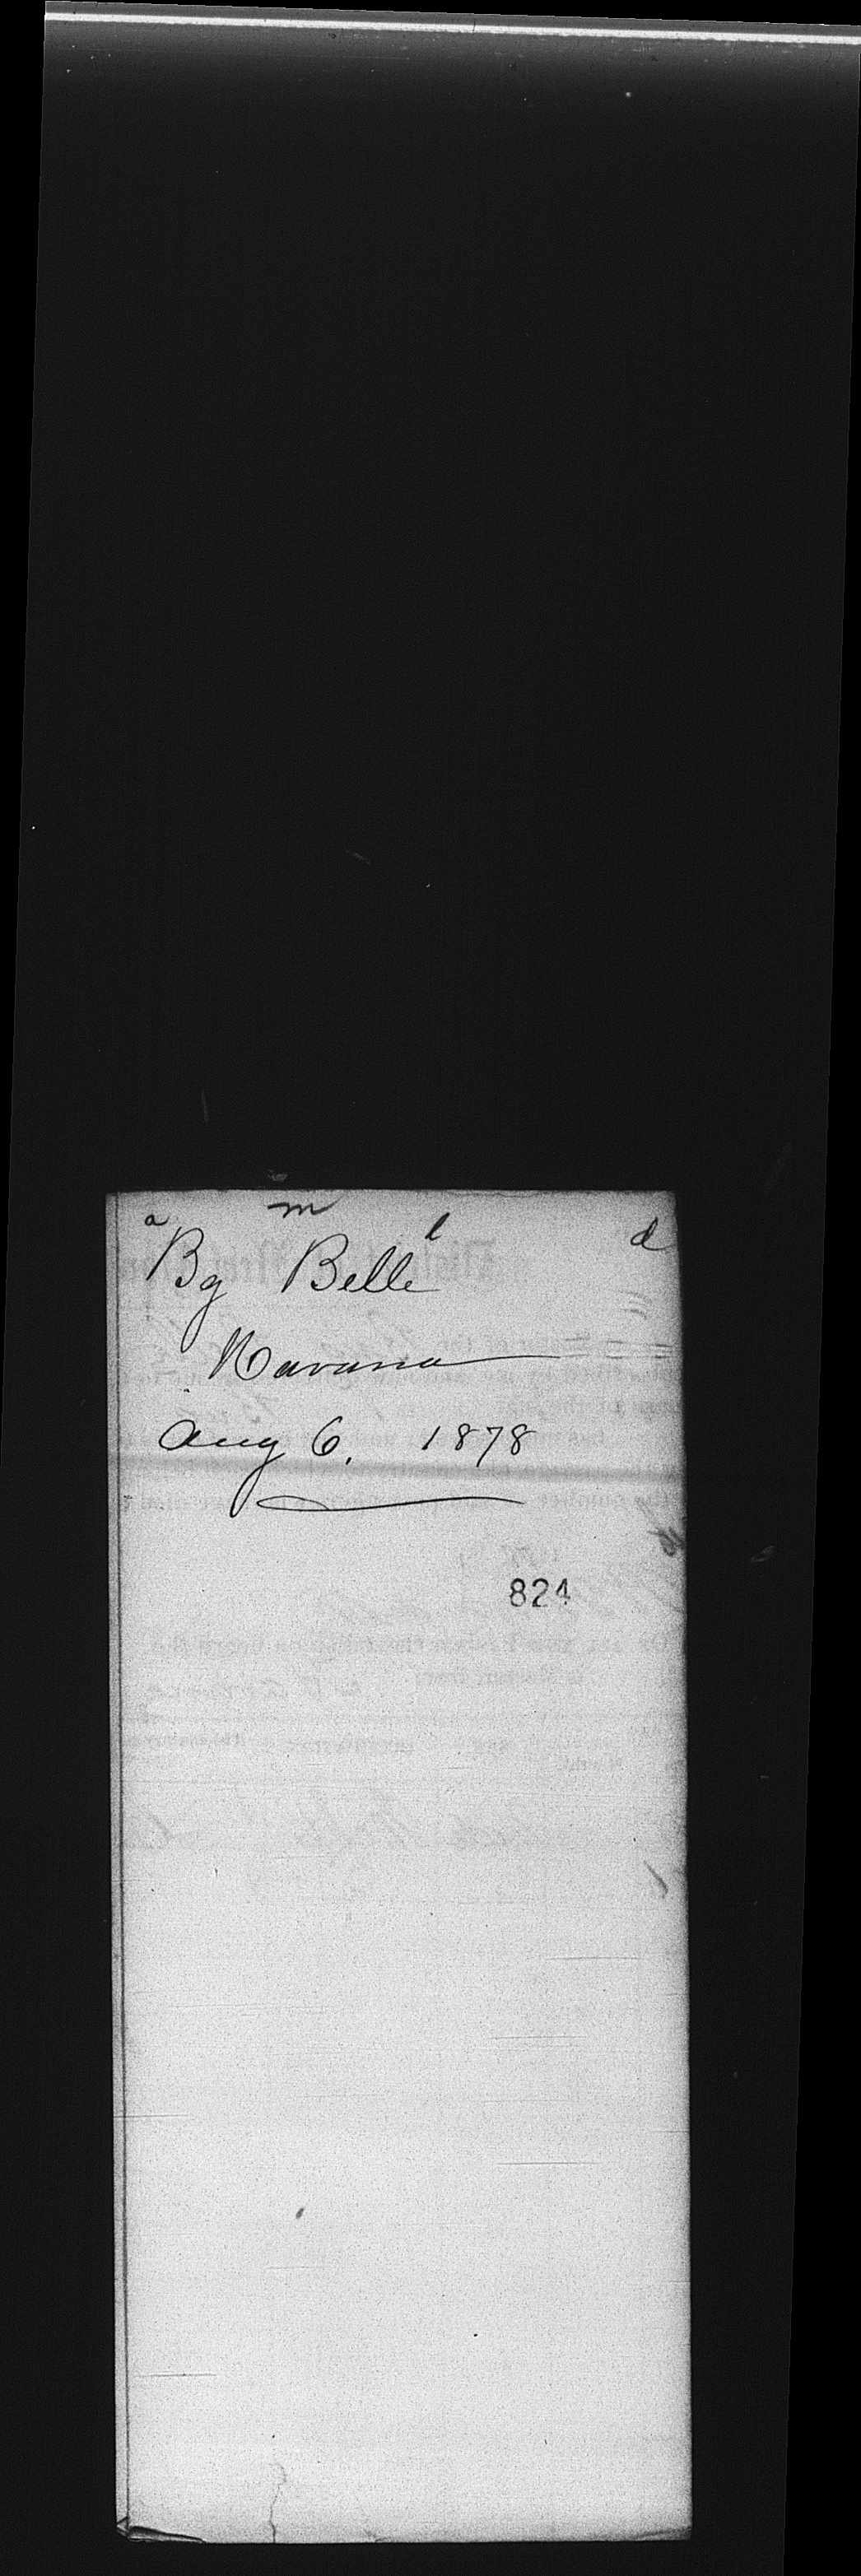 a m l d
Bg Belle
Havana
Aug 6. 1878
824